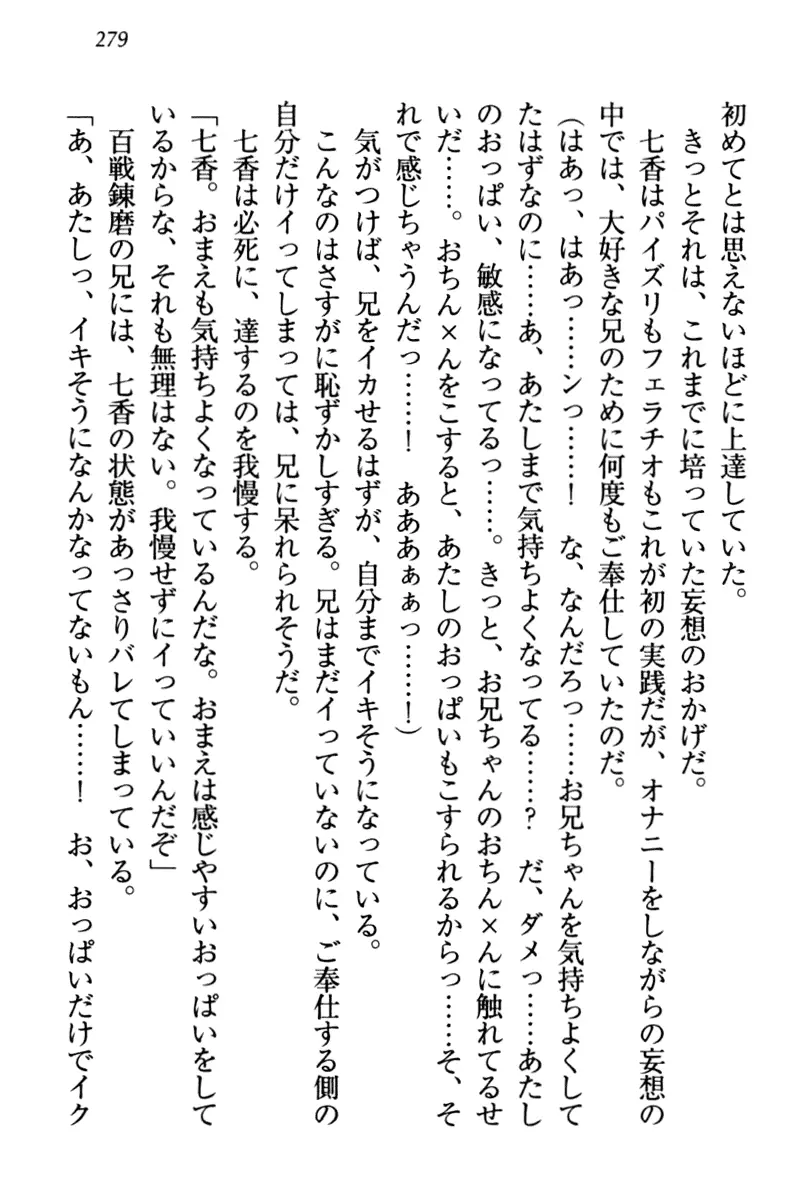 279
初めてとは思えないほどに上達していた。
きっとそれは、これまでに培っていた妄想のおかげだ。
七香はパイズリもフェラチオもこれが初の実践だが、オナニーをしながらの妄想の
中では、大好きな兄のために何度もご奉仕していたのだ。
(はあっ、はあっ……ンっ……！　な、なんだろっ……お兄ちゃんを気持ちよくして
たはずなのに……あ、あたしまで気持ちよくなってる……？　だ、ダメっ……あたし
のおっぱい、敏感になってるっ……。きっと、お兄ちゃんのおちん×んに触れてるせ
いだ……。おちん×んをこすると、あたしのおっぱいもこすられるからっ……そ、そ
れで感じちゃうんだっ……！　あああぁぁっ……！)
気がつけば、兄をイカせるはずが、自分までイキそうになっている。
こんなのはさすがに恥ずかしすぎる。兄はまだイっていないのに、ご奉仕する側の
自分だけイってしまっては、兄に呆れられそうだ。
七香は必死に、達するのを我慢する。
「七香。おまえも気持ちよくなっているんだな。おまえは感じやすいおっぱいをして
いるからな、それも無理はない。我慢せずにイっていいんだぞ」
百戦錬磨の兄には、七香の状態があっさりバレてしまっている。
「あ、あたしっ、イキそうになんかなってないもん……！　お、おっぱいだけでイク